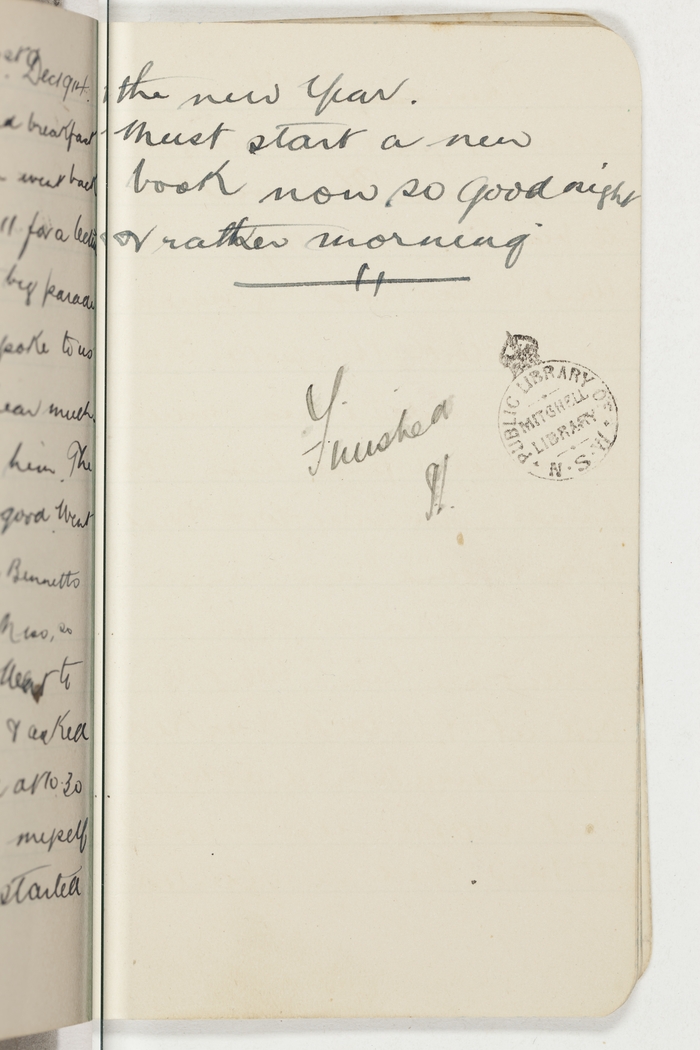 Dec 1914.
breakfast
went back
11 for a
big parade
spoke to us
ear much.
him. The
good. Went
Bennetts
so
& asked
at 10.30
myself
started
the new Year.
Must start a new
book now so good night
or rather morning
Finished
H.
PUBLIC LIBRARY OF N.S.W.
MITCHELL
LIBRARY